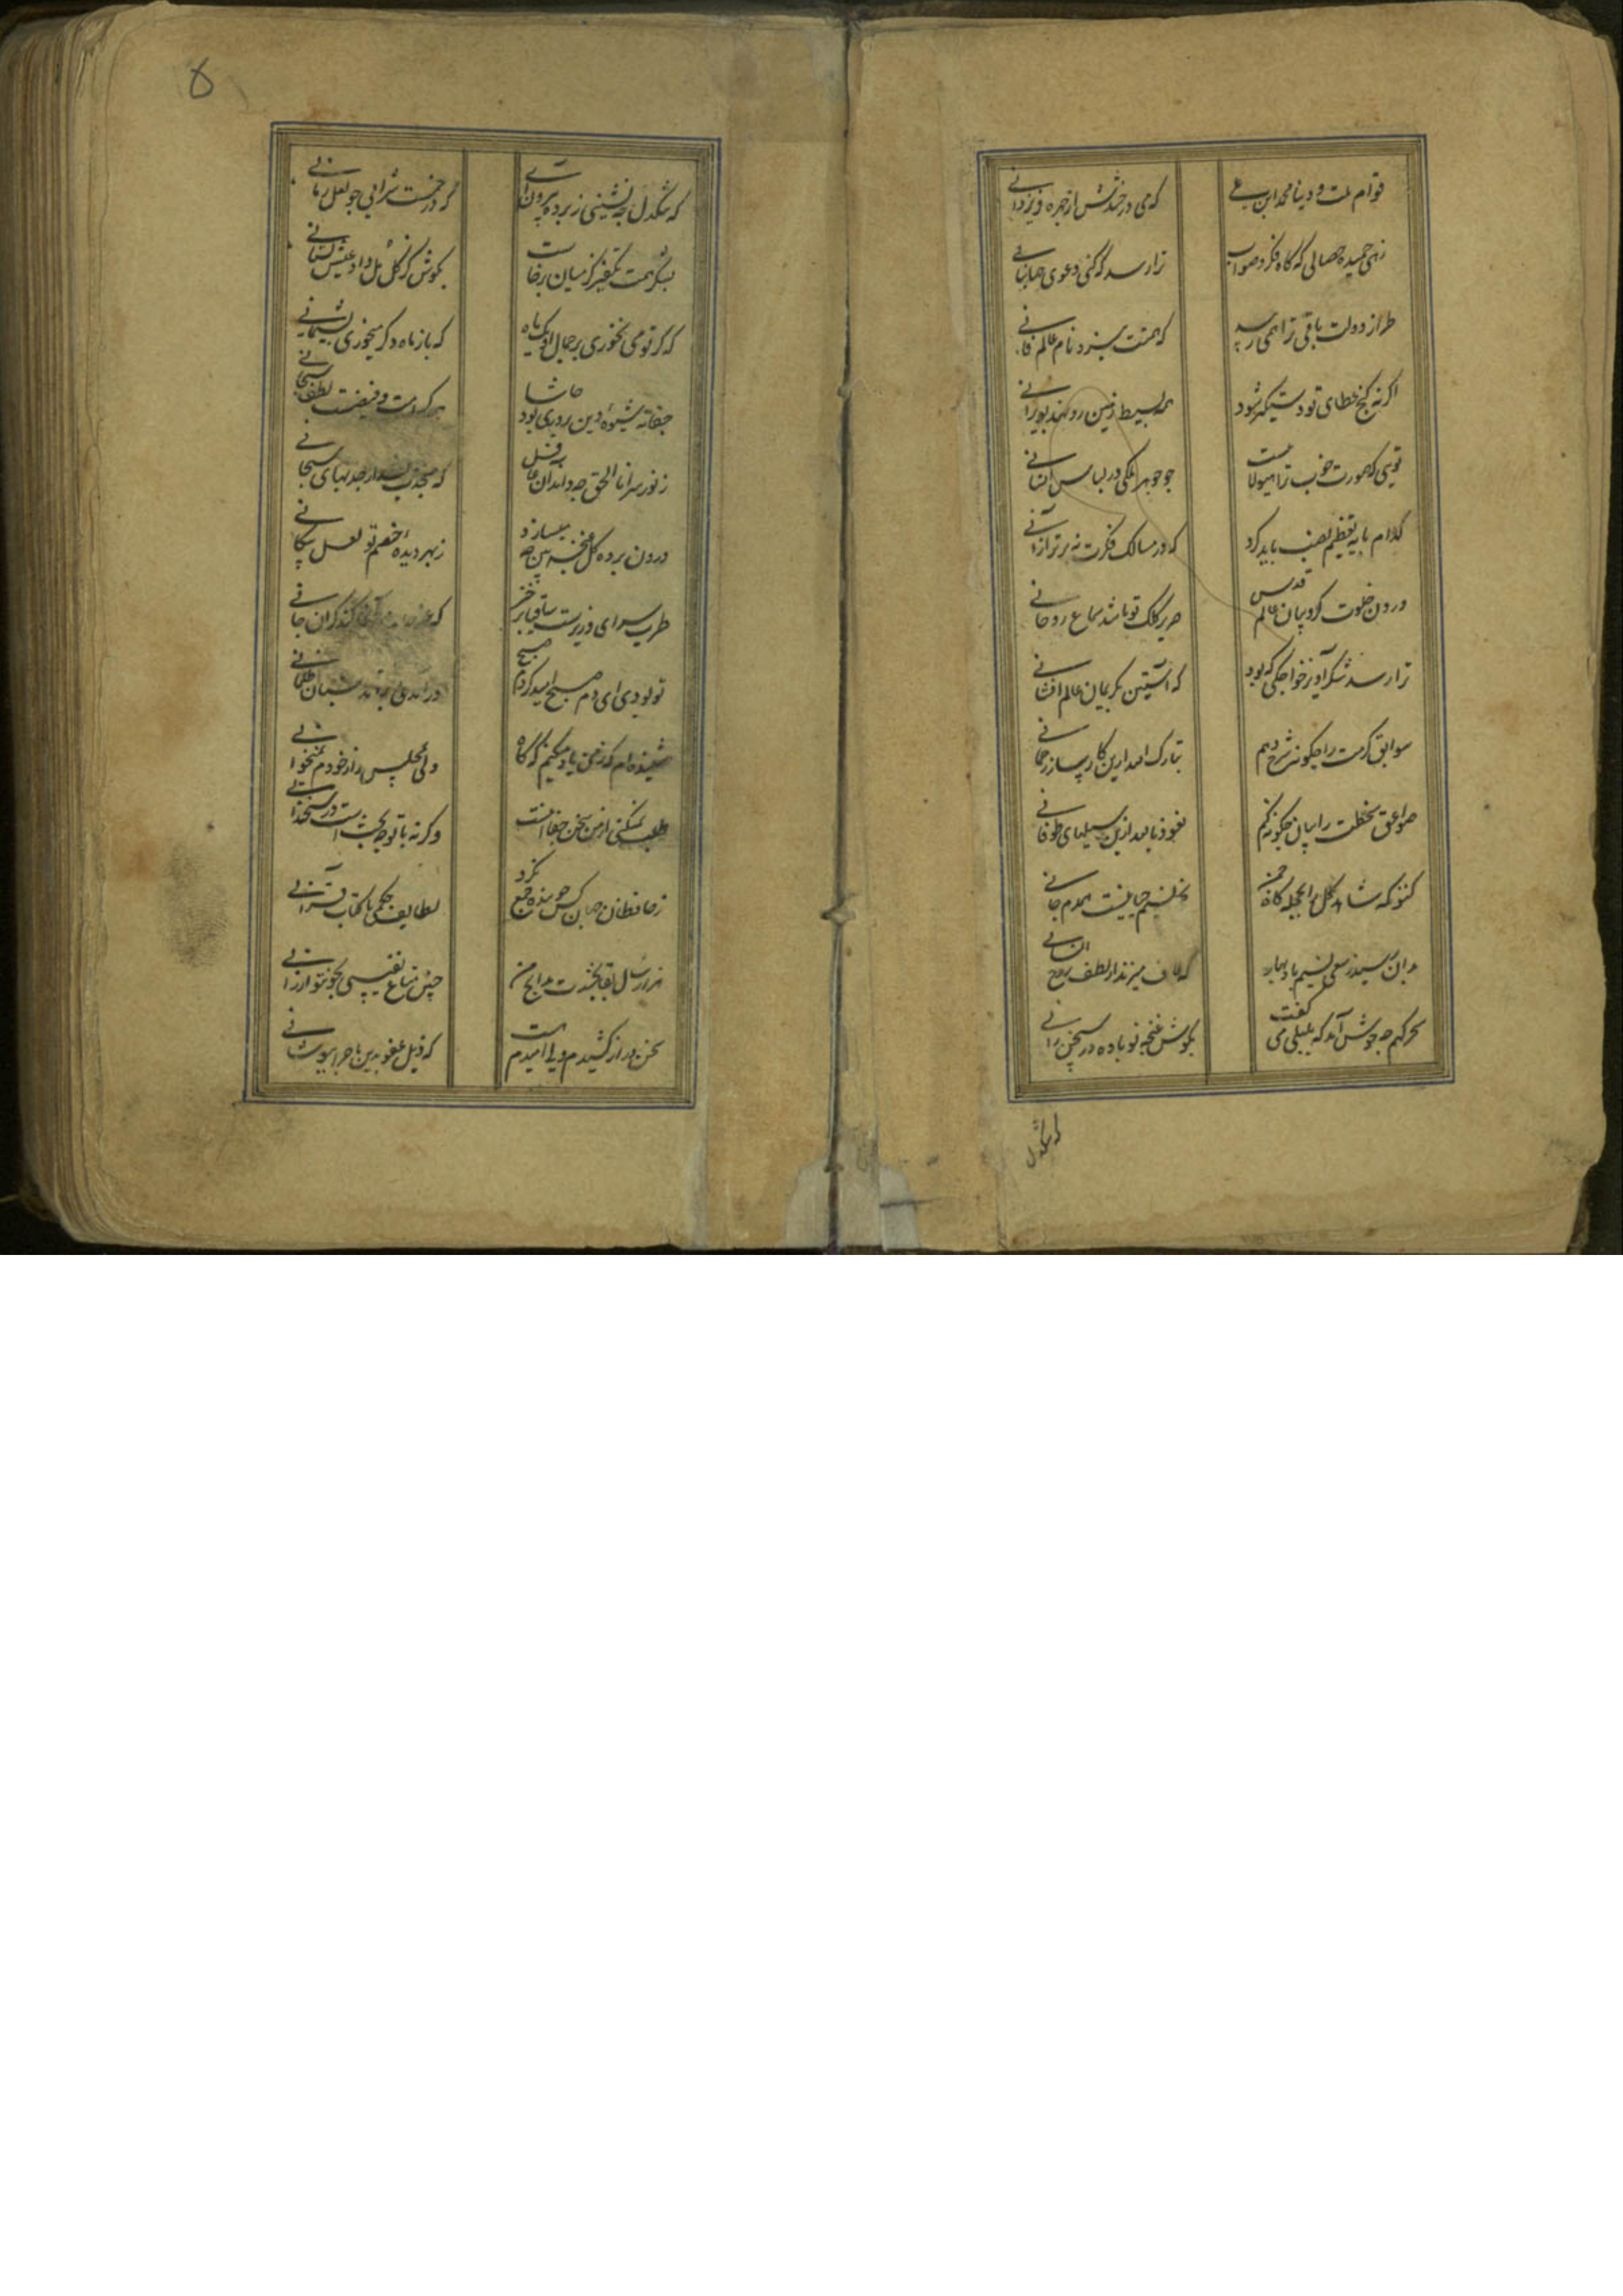 قوام ملت و دنیا محمد ابن علی که می درخشدش از چهره فر یزدانی
زهی حمیده خصالی که گاه فکر و صواب ترا رسد که کنی دعوی جهانبانی
طراز دولت باقی ترا همی زیبد که همتت نبرد نام عالم فانی
اگر نه گنج عطای تو دستگیر شود همه بسیط زمین رو نهد بویرانی
تویی که صورت خوب ترا هیولا نیست چو جوهر ملکی در لباس انسانی
کدام پایه تعظیم نصب باید کرد که در مسالک فکرت نه برتر از آنی
درون خلوت کروبیان عالم قدس صریر کلک تو باشد سماع روحانی
ترا رسد شکر آویز خواجگی که بود که آستین بکریمان عالم افشانی
سوابق کرمت را چگونه شرح دهم تبارک الله از این کارساز رحمانی
صواعق سخطت را بیان چگونه کنم نعوذ بالله ازین سیلهای طوفانی
کنون که شاهد گل را بحجله گاه چمن بجز نسیم صبا نیست همدم جانی
بدان رسید ز سعی نسیم باد بهار که لاف میزند از لطف روح انسانی
سحرگهم چه خوش آمد که بلبلی می گفت بگوش غنچه نو باده در سخن رانی
که تنگدل
۵
که تنگدل چه نشینی ز پرده بیرون آی که در خمست شرابی چو لعل رمانی
بشکر تهمت تکفیر کز میان برخاست بکوش کز گل و مل داد عیش بستانی
که گر تو می نخوری بر جمال گل یک ماه که باز ماه دگر میخوری پشیمانی
جفا نه شیوه دین پروری بود حاشا همه کرامت و فیضست لطف سبحانی
رموز سر انا الحق چه داند آن غافل که منجذب نشد از جذبهای سبحانی
درون پرده گل غنچه بین چه میسازد ز بهر دیده خصم تو لعل پیکانی
طرب سرای وزیرست ساقیا برخیز
تو بودی ای دم صبح امید کز دم صبح برآمدی و سرآمد شبان ظلمانی
شنیده ام که ز من یاد میکنی گه گاه ولی بمجلس راز خودم نمیخوانی
طلب نمیکنی از من سخن جفا اینست وگرنه با تو چه بحثست در سخندانی
ز حافظان جهان کس چو بنده جمع نکرد لطایف حکمی با کتاب قرآنی
هزار سال بقا بخشدت مدایح من چنین متاع نفیسی بچون تو ارزانی
سخن دراز کشیدم ولی امیدم هست که ذیل عفو بدین ماجرا بپوشانی